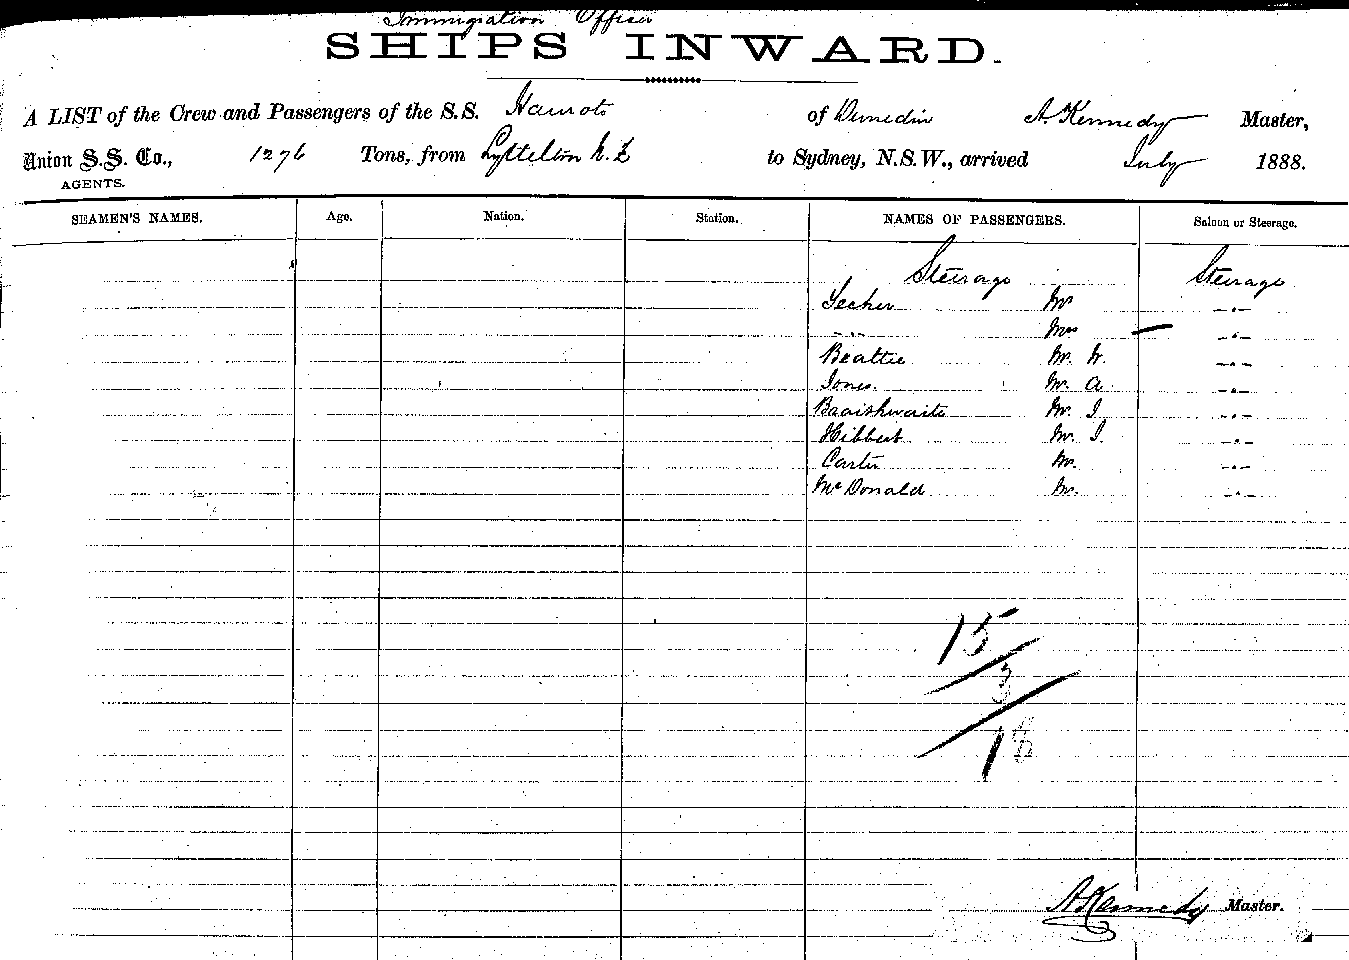 Immigration Officer
SHIPS INWARD.
A LIST of the Crew and Passengers of the S.S. Hauroto of Dunedin A. Kennedy Master,
Union S.S. Co., 1276 Tons, from Lyttelton N.Z to Sydney, N.S.W., arrived July 1888.
AGENTS.
SEAMEN'S NAMES. Age. Nation. Station. NAMES OF PASSENGERS. Saloon or Steerage.
Steerage Steerage
Mr -"-
-"- Mrs -"-
Beattie Mr. W. -"-
Jones. Mr. A -"-
Braithwaite Mr. J -"-
Hibbert Mr. J. -"-
Carter Mr. -"-
McDonald Mr. -"-
15
3
18
A Kennedy Master.